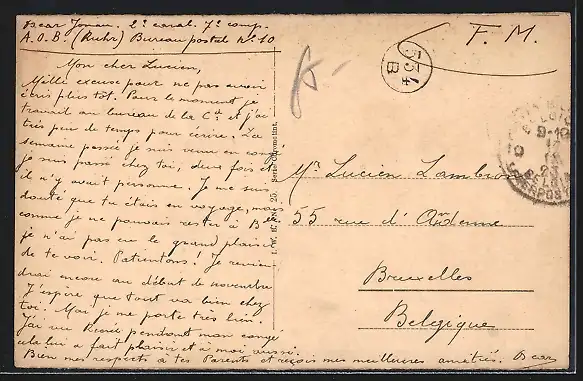 Oscar 2e carab. 7e comp.
A.O.B. (Ruhr) Bureau postal No 10
F. M.
Mon cher Lucien,
Mille excuse pour ne pas avoir
écris plus tot. Pour le moment je
travail au bureau de la Cie et j'ai
très peu de temps pour écrire. La
semaine passé je suis venu en congé
je suis passé chez toi, deux fois et
il n'y avait personne. Je me suis
douté que tu étais en voyage, moi
comme je ne pouvais rester à
je n'ai pas eu le grand plaisir
de te voir. Patientons! Je revien-
drai encore au début de novembre
J'espère que tout va bien chez
toi. Moi je me porte très bien.
J'ai vu René pendant mon congé
cela lui a fait plaisir et à moi aussi.
Bien mes respects à tes Parents et reçois mes meilleures amitiés. Oscar
No 25. Serie
534
B
9-10
Mr Lucien
55 rue d'Ardenne
Bruxelles
Belgique